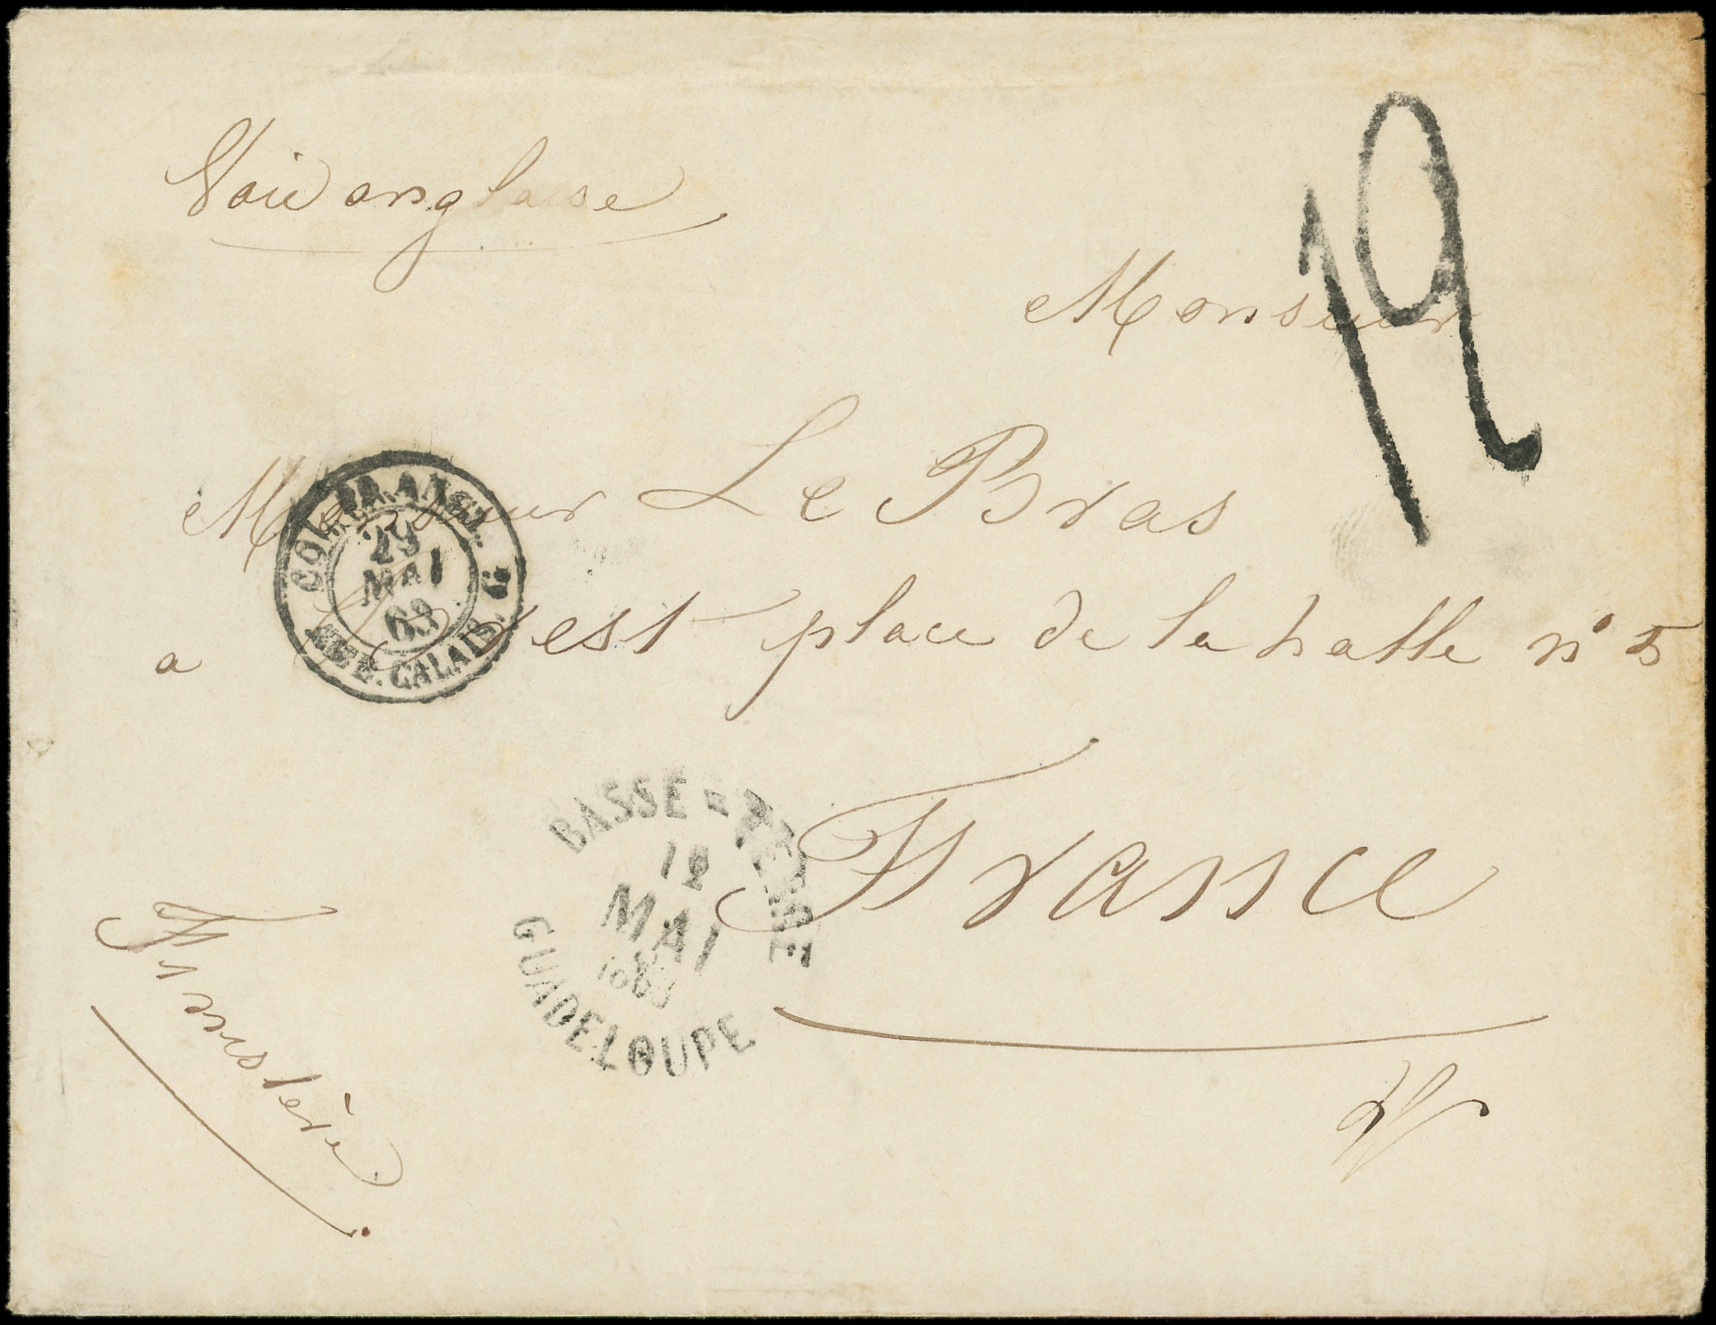 Voie anglaise
12
Monsieur
Monsieur Le Bras
a Brest place de la halle n° 5
France
Finistère
COL. FR. ANGL.
29
MAI
63
AMB. CALAIS. G
BASSE-TERRE
12
MAI
1863
GUADELOUPE